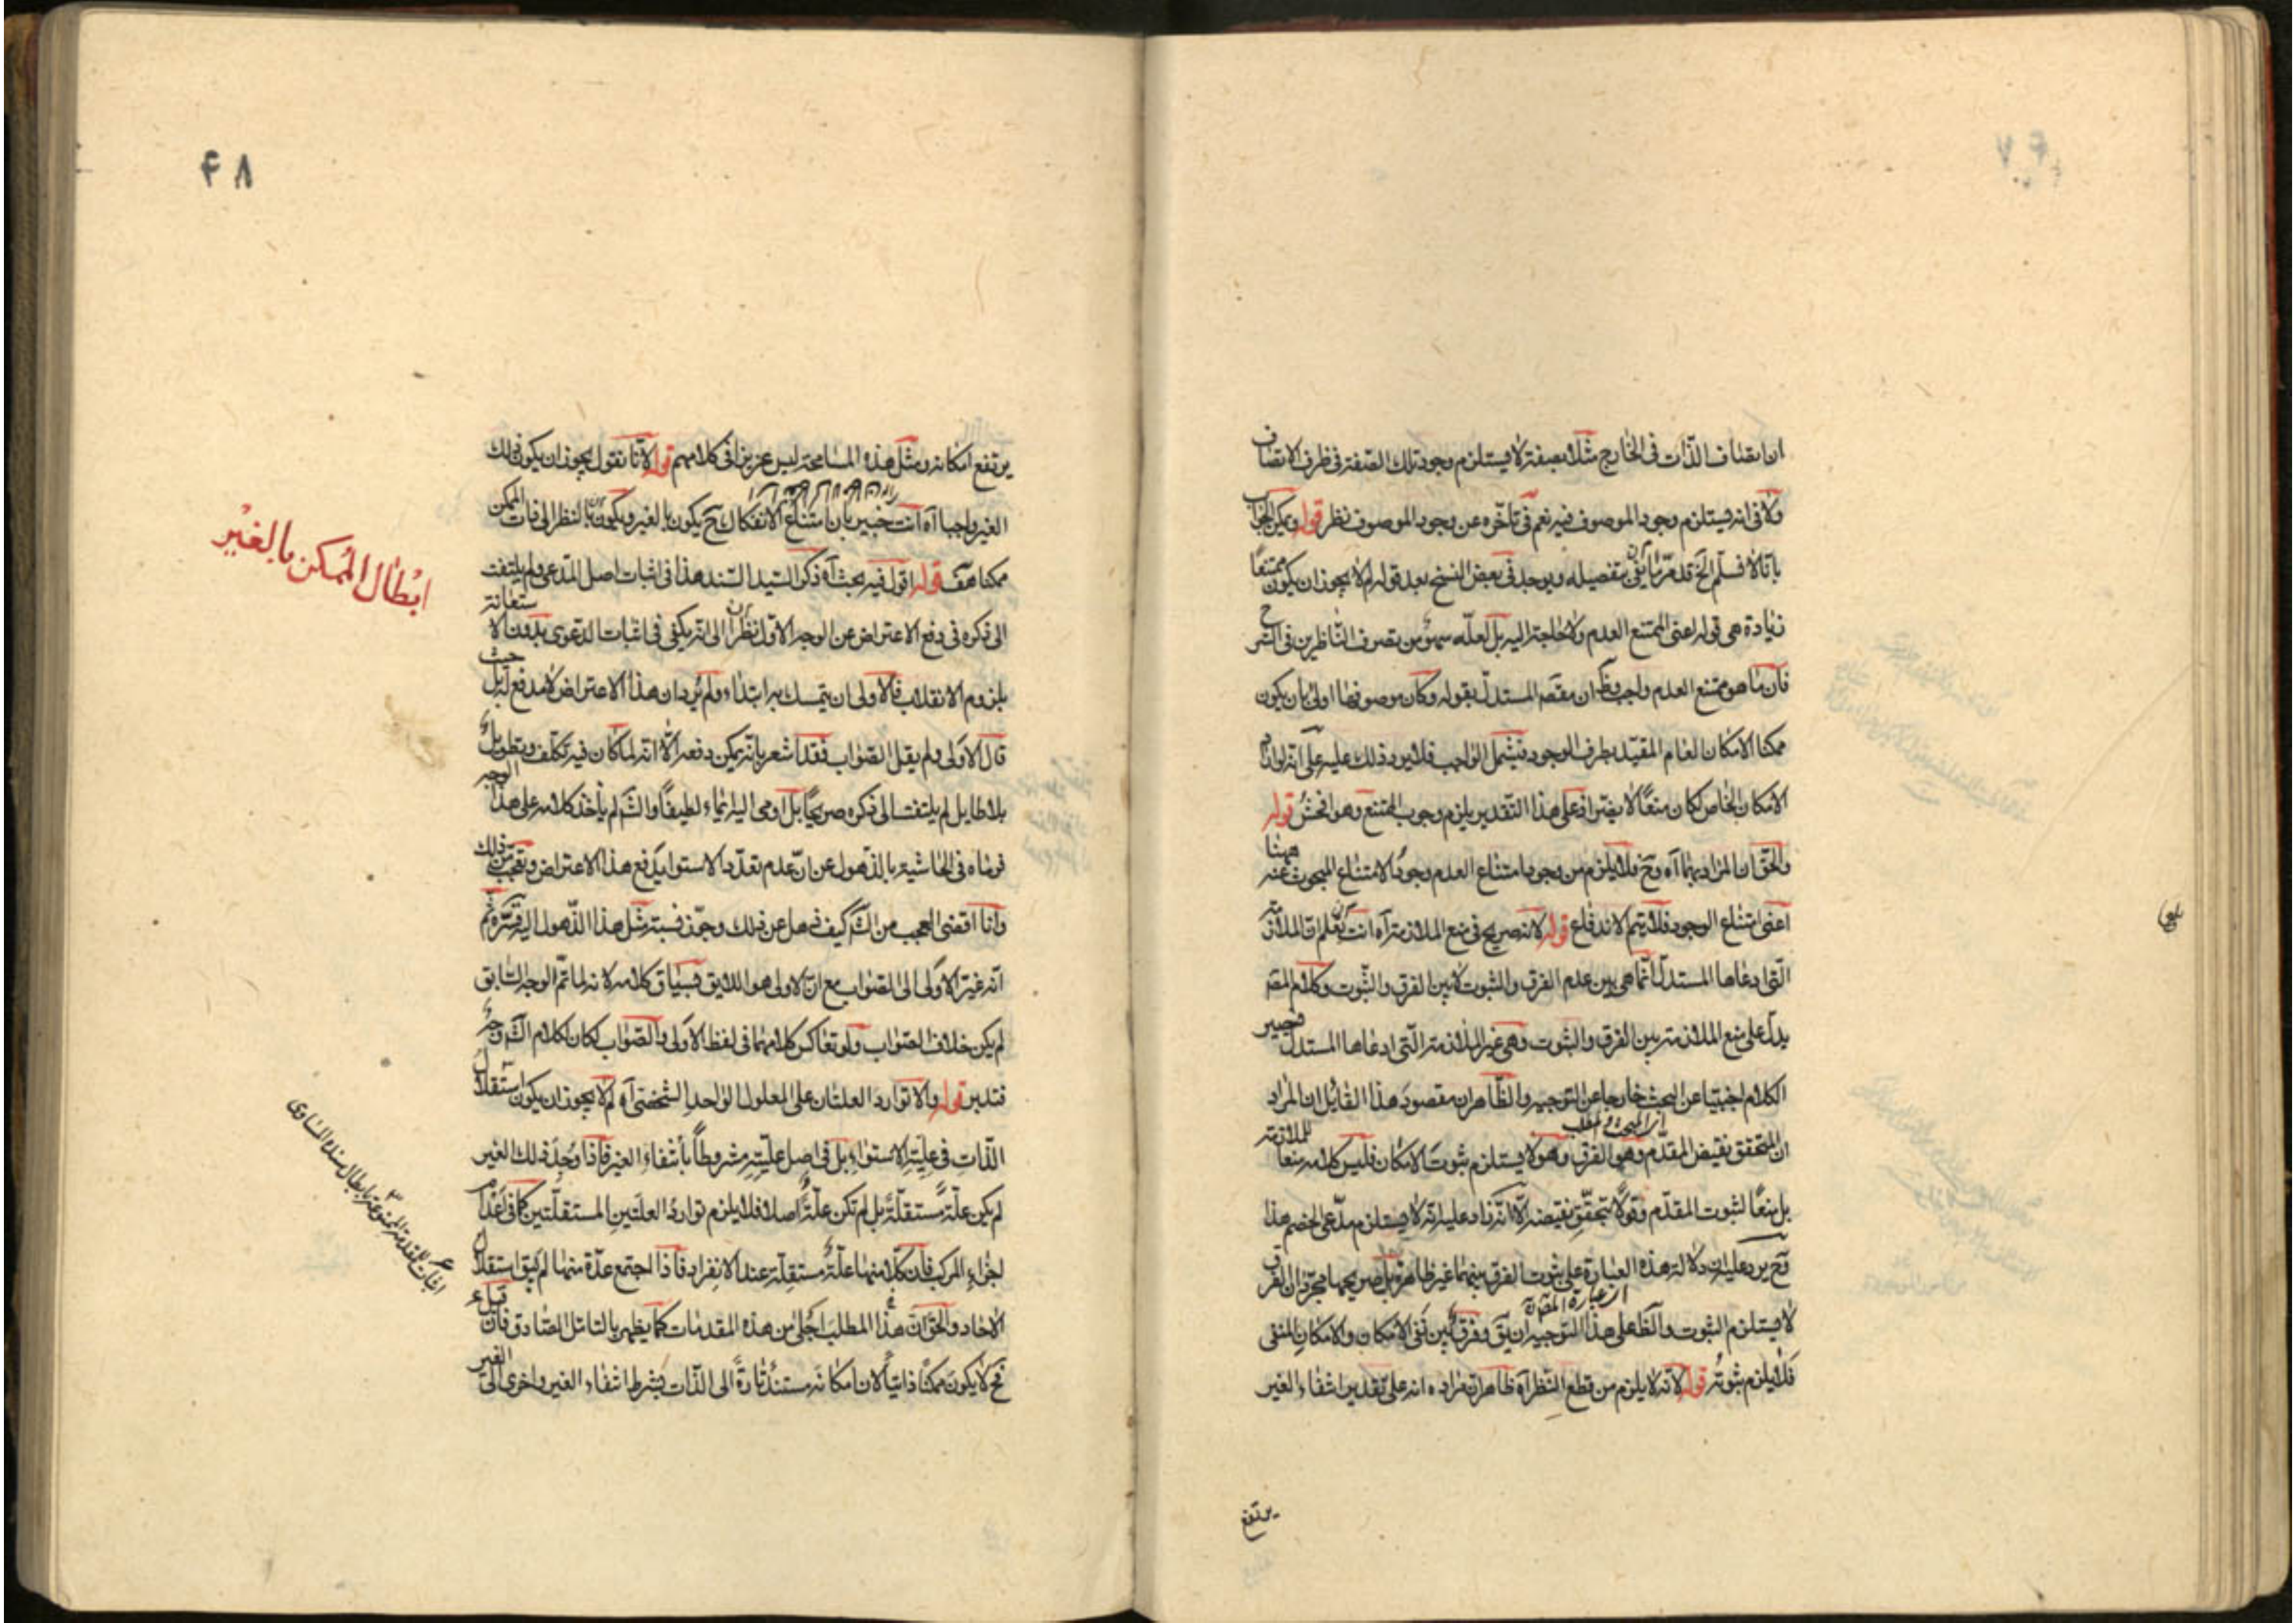 ۴۷
ان اتصاف الذّات فى الخارج مثلا بصفة لا يستلزم وجود تلك الصّفة فى ظرف الاتصاف
ولا فى انه يستلزم وجود الموصوف فيه نعم فى تأخّره عن وجود الموصوف نظر قوله ويمكن الجواب
بانّا لا نسلّم الخ قد مرّ ما يفى بتفصيله ويوجد فى بعض النسخ بعد قوله لم لا يجوز ان يكون ممتنعًا
زيادة هى قوله اعنى الممتنع العدم ولا حاجة اليه بل لعلّه سهو من تصرف النّاظرين فى الشرح
فان ما هو ممتنع العدم واجب وظ ان مقصد المستدلّ بقوله وكان موصوفها اولى بان يكون
ممكنا الامكان العام المقيّد بطرف الوجود فيشمل الواجب فلا يرد ذلك عليه على انه لو اراد
الامكان الخاص لكان منعًا لا يضر اذ على هذا التقدير يلزم وجوب الممتنع وهو افحش قوله
والحقّ ان المراد بهما آه وح فلا يلزم من وجود امتناع العدم وجود الامتناع المبحوث عنه ههنا
اعنى امتناع الوجود فلا يتم الاندفاع قوله لانه صريح فى منع الملازمة آه انت تعلم ان الملازمة
الّتى ادعاها المستدلّ انّما هى بين عدم الفرق والثبوت لا بين الفرق والثّبوت وكلام المصّ
يدلّ على منع الملازمة بين الفرق والثبوت وهى غير الملازمة الّتى ادعاها المستدل فيصير
الكلام اجنبيّا عن البحث خارجا عن التوجيه والظّاهر ان مقصود هذا القائل ان المراد
ان المتحقق نقيض المقدّم وهو الفرق وهو لا يستلزم ثبوت الامكان فليس كلامه منعا للملازمة
بل منعًا لثبوت المقدّم وقولًا بتحقّق نقيضه الّا انّه زاد عليه انّه لا يستلزم مدّعى الخصم هذا
وح يرد عليه ان دلالة هذه العبارة على ثبوت الفرق بينهما غير ظاهرة بل صريحها مجرّد ان الفرق
لا يستلزم الثبوت والظ على هذا التوجيه ان يقَ وفرق بين نفى الامكان والامكان المنفى
فلا يلزم ثبوته قوله لانه لا يلزم من قطع النّظر آه ظاهر ان مراده انه على تقدير انتفاء الغير
يرتفع
۴۸
يرتفع امكانه ومثل هذه المسامحة ليس عزيزا فى كلامهم قوله لانّا نقول يجوز ان يكون ذلك
الغير واجبا آه انت خبير بان امتناع الانفكاك ح يكون بالغير ويكون بالنظر الى ذات الممكن
ممكنا هف قوله اقول فيه بحث آه ذكر السّيد السّند هذا فى اثبات اصل المدّعى ولم يلتفت
الى ذكره فى دفع الاعتراض عن الوجه الاوّل نظرا الى انّه يكفى فى اثبات الدعوى بدون الاستعانة
بلزوم الانقلاب فالاولى ان يتمسك به ابتداء ولم يُرد ان هذا الاعتراض لا مدفع له بل حيث
قال الاولى ولم يقل الصّواب فقد اشعر بانّه يمكن دفعه الّا انه لما كان فيه تكلّف وتطويل
بلا طايل لم يلتفت الى ذكره صريحًا بل اومى اليه ايماء لطيفًا والشَّ لم يأخذ كلامه على هذا الوجه
فرماه فى الحاشية بالذّهول عن انّ عدم تعدّد الاستواء يدفع هذا الاعتراض وتعجّب من ذلك
وانا اقضى العجب من الشَّ كيف ذهل عن ذلك وجوّز نسبة مثل هذا الذّهول اليه قدّس سرّه ثم
انّه غيّر الاولى الى الصّواب مع انّ الاولى هو اللايق بسياق كلامه لانه لما تمّ الوجه السّابق
لم يكن خلاف الصّواب ولو تعاكس كلامهما فى لفظ الاولى والصّواب لكان لكلام الشَّ وجه
فتدبر قوله والا توارد العلّتان على المعلول الواحد الشّخصى آه لم لا يجوز ان يكون استقلال
الذّات فى علّيّة الاستواء بل فى اصل علّيّته مشروطاً بانتفاء الغير فاذا وُجد ذلك الغير
لم يكن علّةً مستقلّةً بل لم تكن علّةً اصلا فلا يلزم توارد العلّتين المستقلّتين كما فى اعدام
اجزاء المركب فان كلّا منها علّةٌ مستقلّة عند الانفراد فاذا اجتمع عدّة منها لم يبق استقلال
الاحاد والحقّ انّ هذا المطلب اجلى من هذه المقدمات كما يظهر بالتامّل الصّادق فان قيل
فح لا يكون ممكنًا ذاتيا لان امكانه مستند تارةً الى الذّات بشرط انتفاء الغير واخرى الى الغير
ابطال الممكن بالغير
اثبات للمقدمة الممنوعة بابطال سنده المساوى